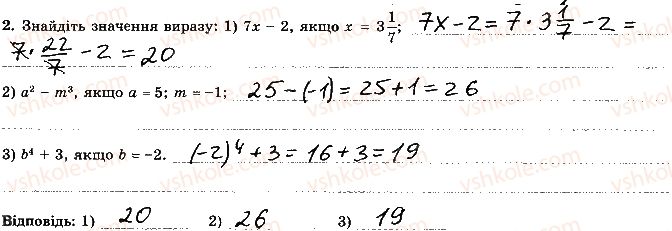 2. Знайдіть значення виразу: 1) 7x − 2, якщо x = 3 1/7; 7x − 2 = 7 · 3 1/7 − 2 =
7 · 22/7 − 2 = 20
2) a² − m³, якщо a = 5; m = −1; 25 − (−1) = 25 + 1 = 26
3) b⁴ + 3, якщо b = −2. (−2)⁴ + 3 = 16 + 3 = 19
Відповідь: 1) 20 2) 26 3) 19